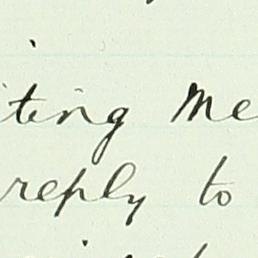 ting Me
reply to